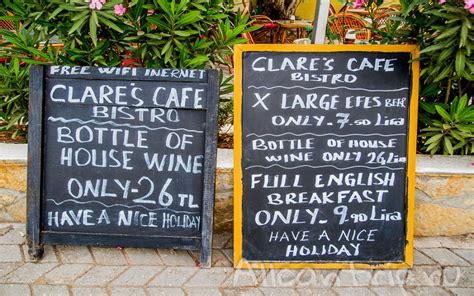 FREE WIFI INERNET
CLARE'S CAFE
BISTRO
BOTTLE OF
HOUSE WINE
ONLY-26 TL
HAVE A NICE HOLIDAY
CLARE'S CAFE
BISTRO
X LARGE EFES BEER
ONLY. 7.50 Lira
BOTTLE OF HOUSE
WINE ONLY 26 Lira
FULL ENGLISH
BREAKFAST
ONLY. 9.90 Lira
HAVE A NICE
HOLIDAY